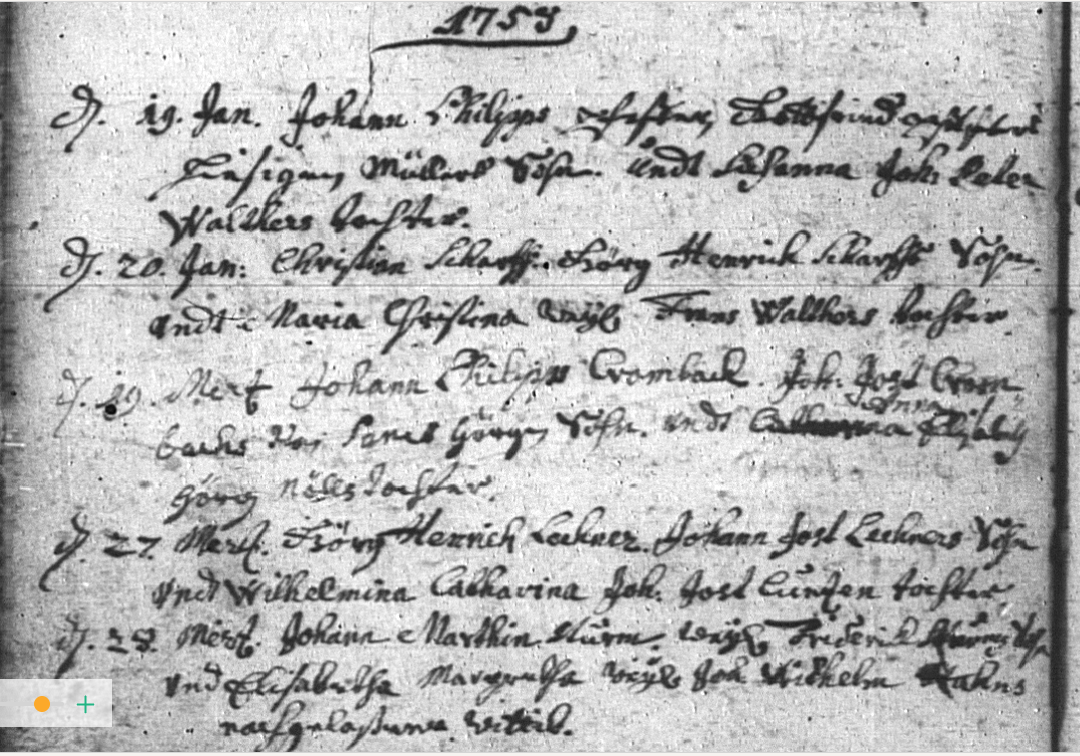 1753
d. 19. Jan. Johann Philipps
hiesigen Müllers Sohn. Undt Susanna Joh: Peter
Walthers tochter.
d. 20. Jan: Christian Scharff. Görg Henrich Scharffs Sohn.
undt Maria Christina weyl. Frans Walthers tochter.
d. 19. Mertz Johann Philipps Cromback. Joh: Jost Crom
backs von Sohn. undt Anna Elisabeth
Görg Nölls tochter.
d. 27. Mertz. Görg Henrich Leckner. Johann Jost Leckners Sohn
undt Wilhelmina Catharina Joh. Jost Cuntzen tochter
d. 28. Mertz. Johann Marthin Sturm. weyl. Friderich Sturms Sohn
und Elisabetha Margretha weyl. Joh. Wilhelm Hahns
nachgelassene Wittib.